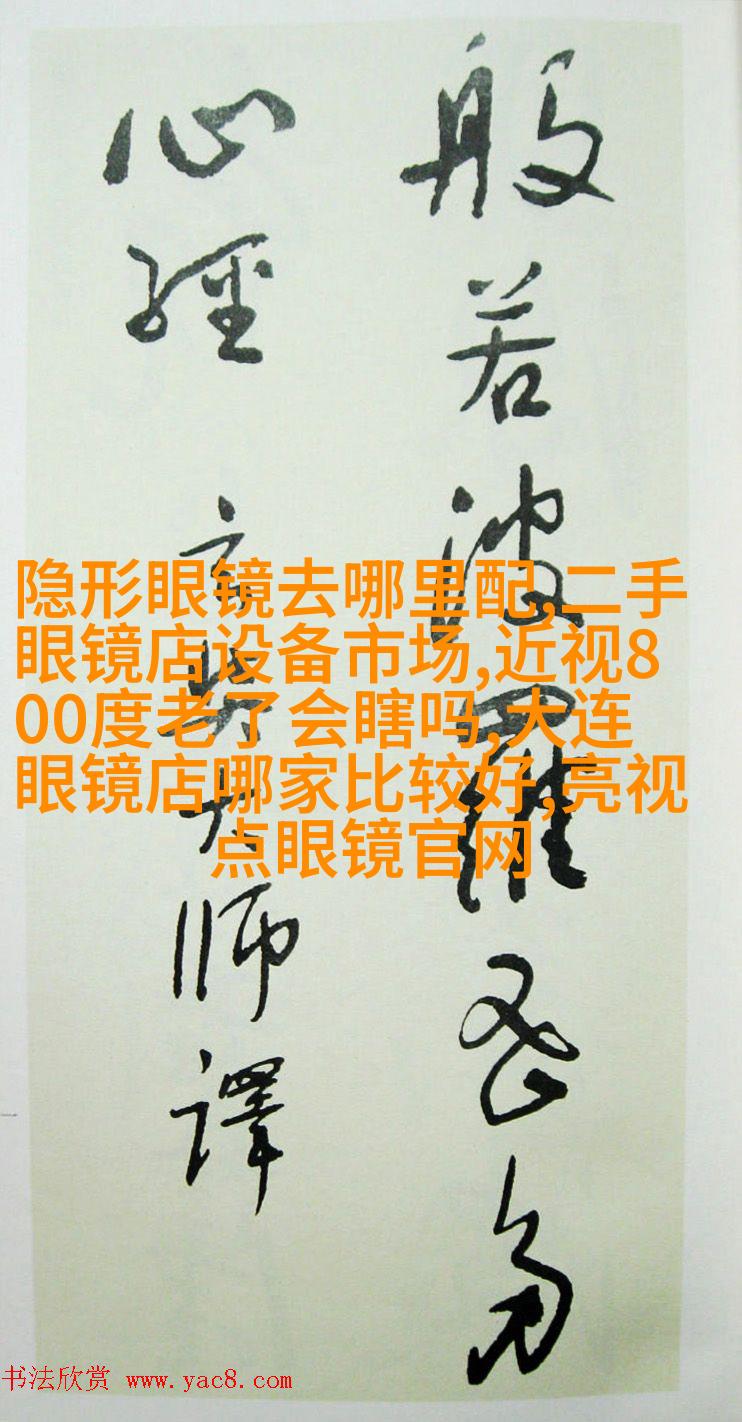 般若波羅蜜多
心經 玄奘大師譯
隐形眼镜去哪里配,二手
眼镜店设备市场,近视8
00度老了会瞎吗,大连
眼镜店哪家比较好,亮视
点眼镜官网
书法欣赏 www.yac8.com